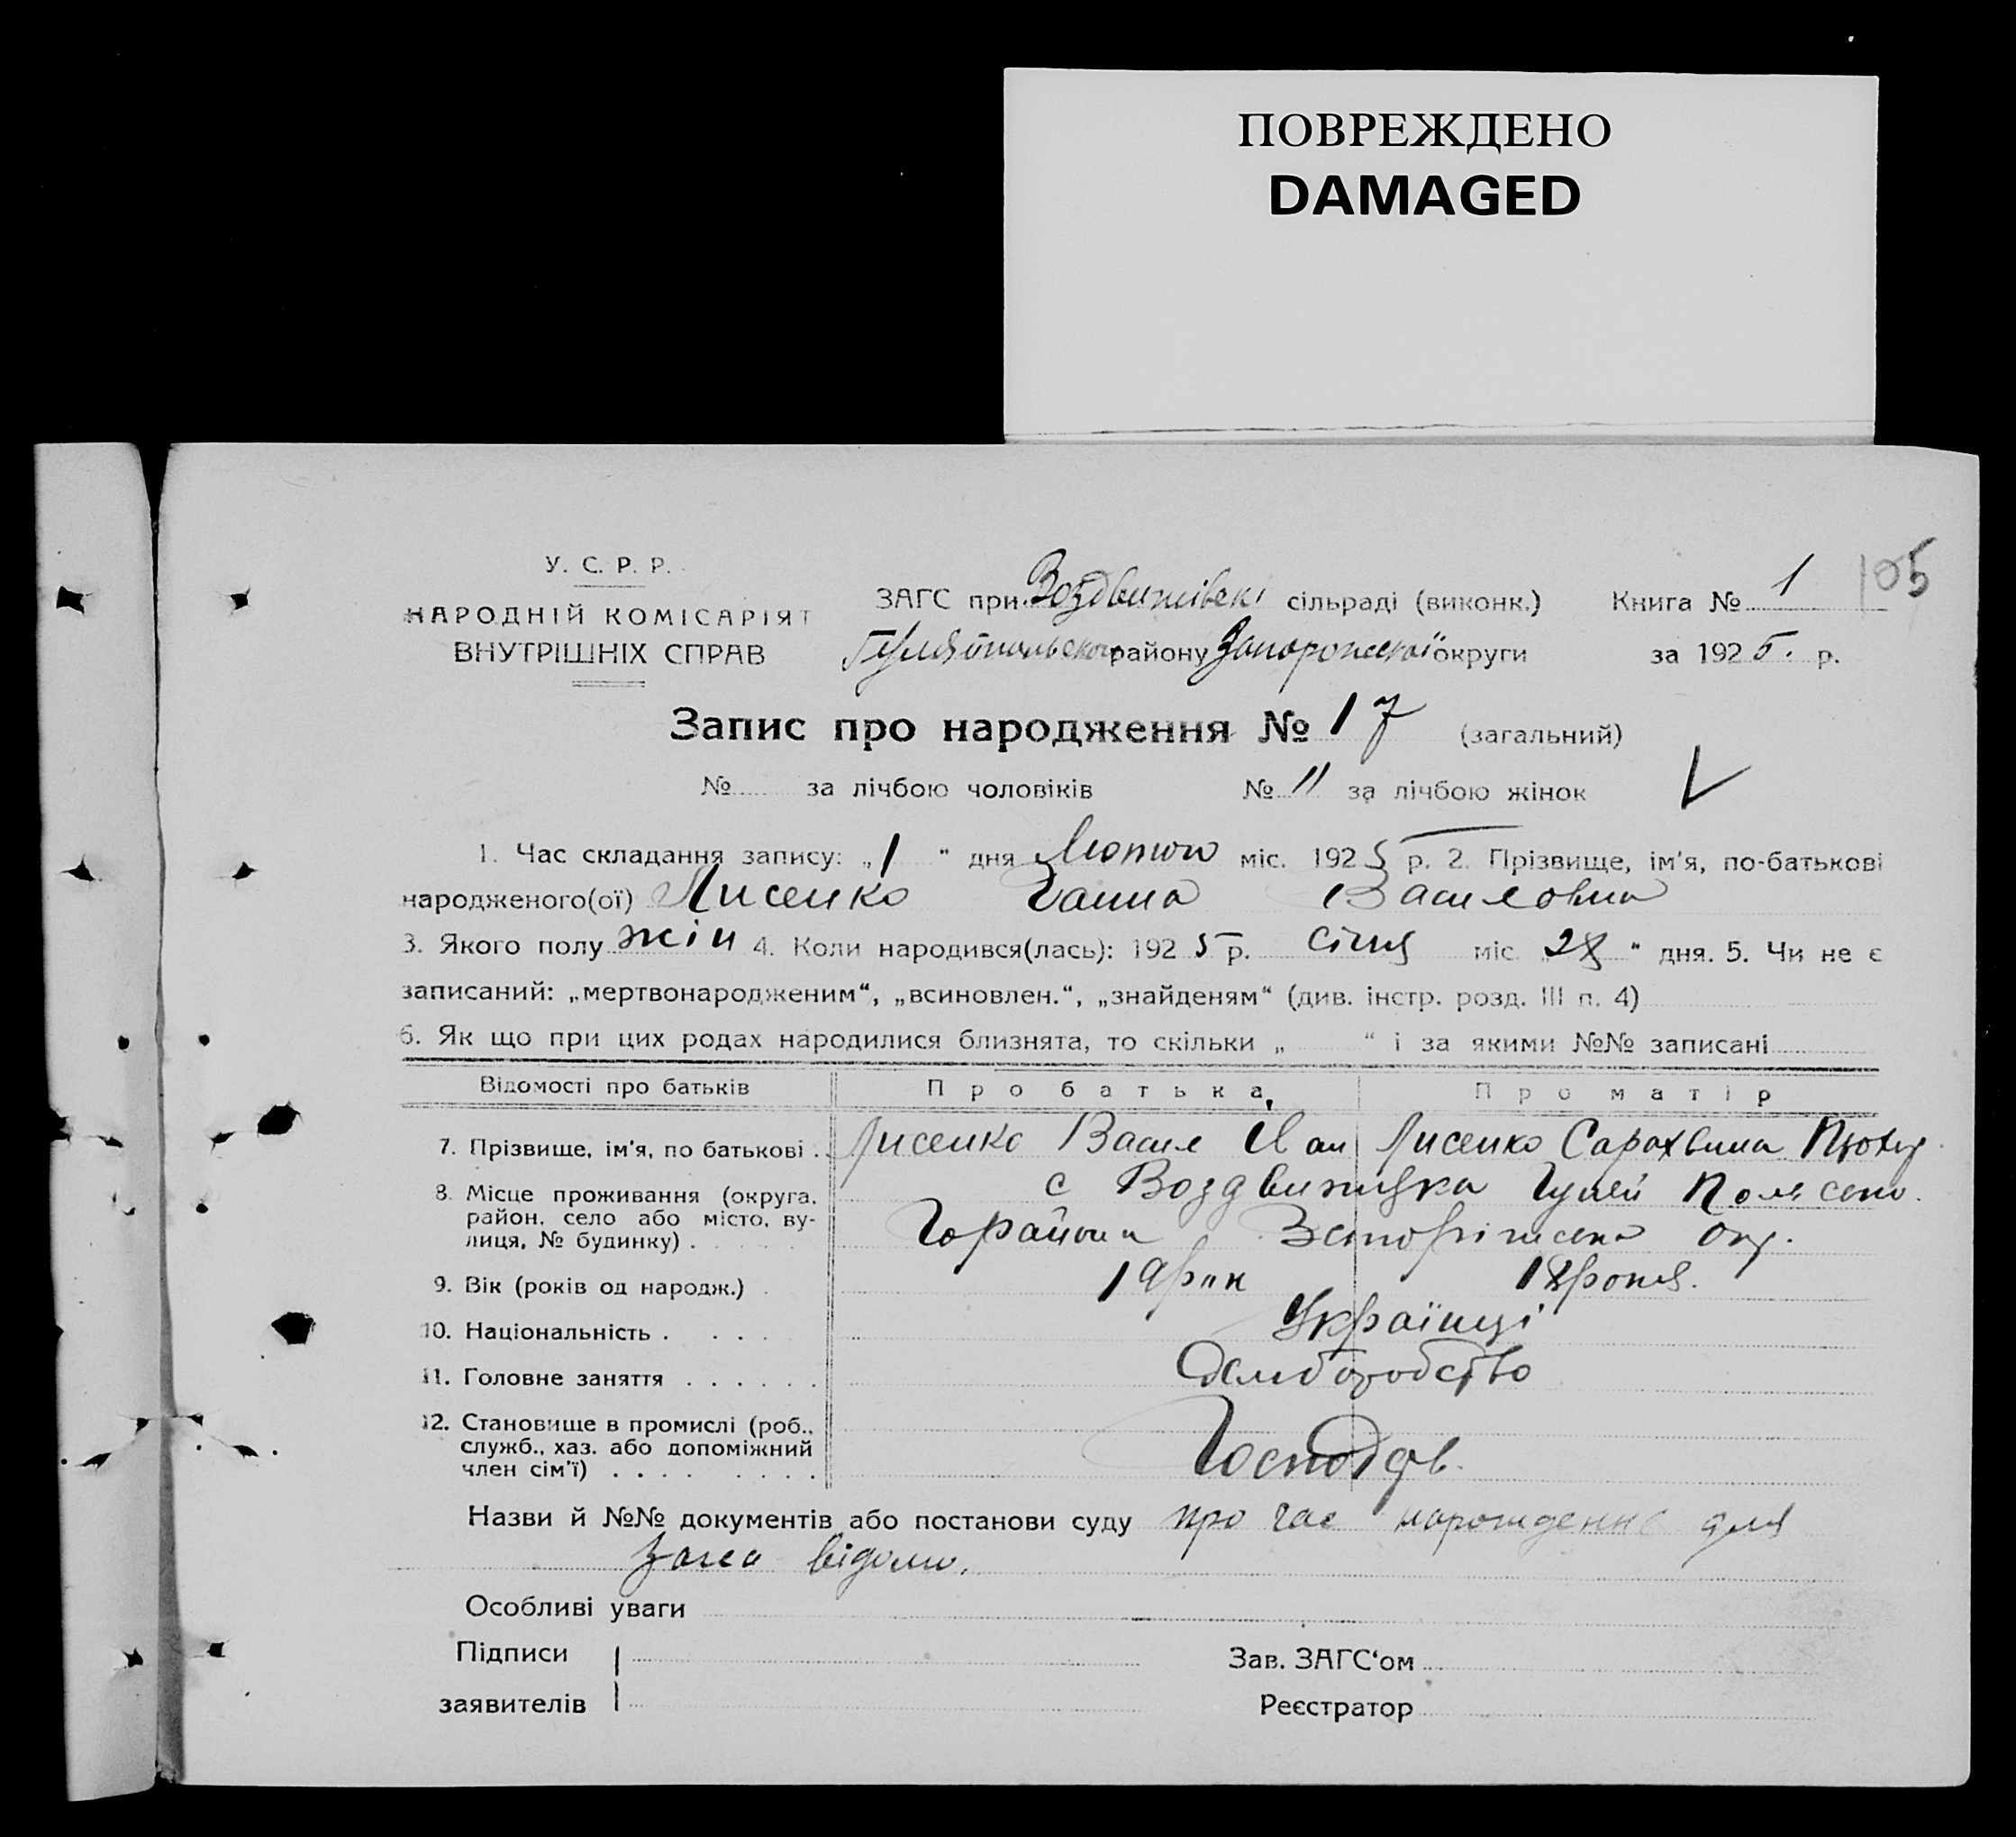 ПОВРЕЖДЕНО
DAMAGED
У. С. Р. Р.
НАРОДНІЙ КОМІСАРІЯТ
ВНУТРІШНІХ СПРАВ
ЗАГС при Воздвижівскі сільраді (виконк.)
Гуляйпольського району Запорожскої округи
Книга № 1
105
за 1925. р.
Запис про народження № 17 (загальний)
№ за лічбою чоловіків № 11 за лічбою жінок
1. Час складання запису: „1 “ дня Лютого міс. 1925 р. 2. Прізвище, ім'я, по-батькові
народженого(ої) Лисенко Ганна Василовна
3. Якого полу жін 4. Коли народився(лась): 1925 р. січня міс. 28 “ дня. 5. Чи не є
записаний: „мертвонародженим“, „всиновлен.“, „знайденям“ (див. інстр. розд. III п. 4)
6. Як що при цих родах народилися близнята, то скільки „ “ і за якими №№ записані
Відомості про батьків Про батька Про матір
7. Прізвище, ім'я, по батькові . Лисенко Васил Іван Лисенко Сарахвина
8. Місце проживання (округа, район, село або місто, вулиця, № будинку) . с Воздвижувка Гуляй Полясько
го району Запоріжска окр.
9. Вік (років од народж.) . 19 рик 18 роков.
10. Національність . . . . Українці
11. Головне заняття . . . . . . Хліборобство
12. Становище в промислі (роб.,
служб., хаз. або допоміжний
член сім'ї) . . . . . . . . Господар.
Назви й №№ документів або постанови суду про час нарождення для
загса відомо.
Особливі уваги
Підписи
заявителів
Зав. ЗАГС'ом
Реєстратор